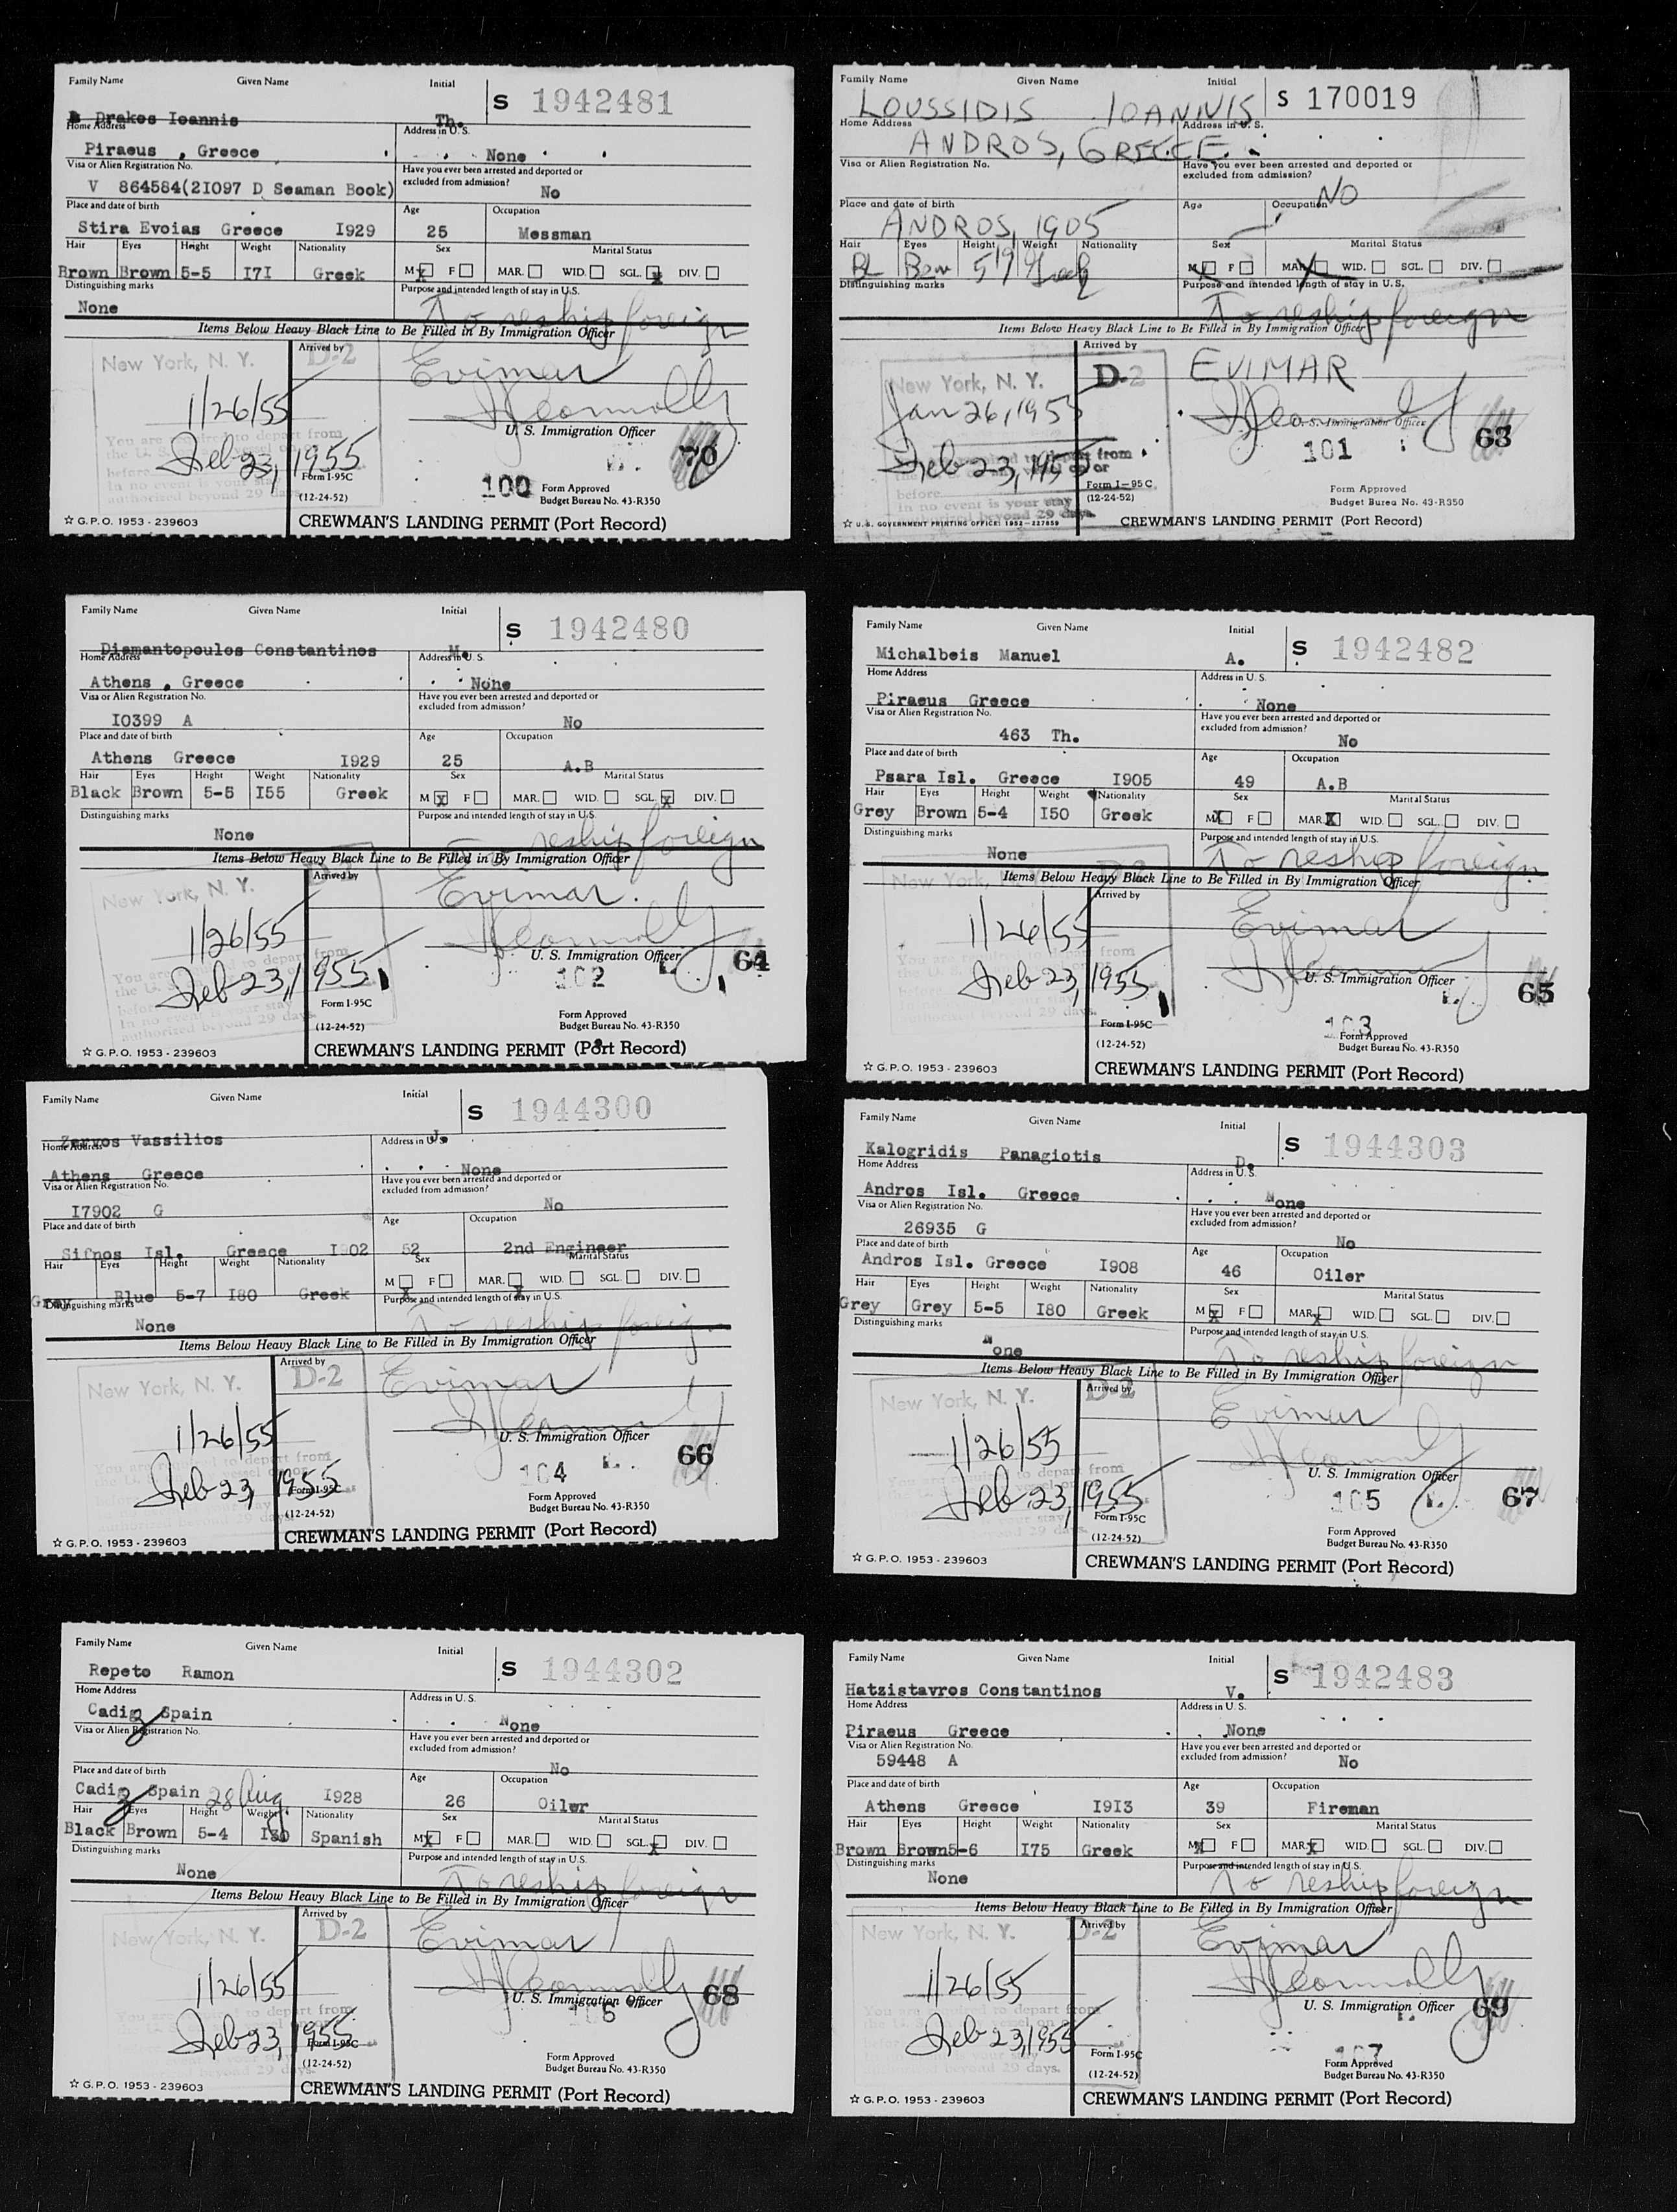 Family Name Given Name Initial
S 1942481
Drakos Ioannis Th.
Home Address Address in U.S.
Piraeus , Greece None
Visa or Alien Registration No. Have you ever been arrested and deported or excluded from admission?
V 864584(2I097 D Seaman Book) No
Place and date of birth Age Occupation
Stira Evoias Greece I929 25 Messman
Hair Eyes Height Weight Nationality Sex Marital Status
Brown Brown 5-5 I7I Greek M X F MAR. WID. SGL. X DIV.
Distinguishing marks Purpose and intended length of stay in U.S.
None To reship foreign
Items Below Heavy Black Line to Be Filled in By Immigration Officer
New York, N. Y. Arrived by D-2 Evimar
1/26/55
U. S. Immigration Officer
You are required to depart from
Feb 23, 1955
before
In no event is your stay
authorized beyond 29 days
70
Form I-95C
(12-24-52)
100 Form Approved
Budget Bureau No. 43-R350
☆ G.P.O. 1953 - 239603 CREWMAN'S LANDING PERMIT (Port Record)
Family Name Given Name Initial
S 170019
LOUSSIDIS IOANNIS
Home Address Address in U. S.
ANDROS, GREECE
Visa or Alien Registration No. Have you ever been arrested and deported or excluded from admission?
NO
Place and date of birth Age Occupation
ANDROS, 1905
Hair Eyes Height Weight Nationality Sex Marital Status
BL Brn 5'7 Greek M X F MAR. X WID. SGL. DIV.
Distinguishing marks Purpose and intended length of stay in U.S.
To reship foreign
Items Below Heavy Black Line to Be Filled in By Immigration Officer
New York, N. Y. Arrived by D-2 EVIMAR
Jan 26, 1955
U. S. Immigration Officer
63
101
Feb 23, 1955
before
In no event is your stay
beyond 29 days.
Form I-95 C
(12-24-52)
Form Approved
Budget Burea No. 43-R350
☆ U.S. GOVERNMENT PRINTING OFFICE: 1952—227859 CREWMAN'S LANDING PERMIT (Port Record)
Family Name Given Name Initial
S 1942480
Diamantopoulos Constantinos M.
Home Address Address in U. S.
Athens , Greece None
Visa or Alien Registration No. Have you ever been arrested and deported or excluded from admission?
I0399 A No
Place and date of birth Age Occupation
Athens Greece I929 25 A.B
Hair Eyes Height Weight Nationality Sex Marital Status
Black Brown 5-5 I55 Greek M X F MAR. WID. SGL. X DIV.
Distinguishing marks Purpose and intended length of stay in U.S.
None To reship foreign
Items Below Heavy Black Line to Be Filled in By Immigration Officer
New York, N. Y. Arrived by Evimar.
1/26/55
U. S. Immigration Officer
64
102
Feb 23, 1955
In no event is your stay
authorized beyond 29 days
Form I-95C
(12-24-52)
Form Approved
Budget Bureau No. 43-R350
☆ G.P.O. 1953 - 239603 CREWMAN'S LANDING PERMIT (Port Record)
Family Name Given Name Initial
S 1942482
Michalbeis Manuel A.
Home Address Address in U. S.
Piraeus Greece None
Visa or Alien Registration No. Have you ever been arrested and deported or excluded from admission?
463 Th. No
Place and date of birth Age Occupation
Psara Isl. Greece I905 49 A.B
Hair Eyes Height Weight Nationality Sex Marital Status
Grey Brown 5-4 I50 Greek M X F MAR. X WID. SGL. DIV.
Distinguishing marks Purpose and intended length of stay in U.S.
None To reship foreign
Items Below Heavy Black Line to Be Filled in By Immigration Officer
New York, Arrived by D-2 Evimar
1/26/55
U. S. Immigration Officer
65
Feb 23, 1955
authorized beyond 29 days
Form I-95C
(12-24-52)
103
Form Approved
Budget Bureau No. 43-R350
☆ G.P.O. 1953 - 239603 CREWMAN'S LANDING PERMIT (Port Record)
Family Name Given Name Initial
S 1944300
Zervos Vassilios J.
Home Address Address in U.S.
Athens Greece None
Visa or Alien Registration No. Have you ever been arrested and deported or excluded from admission?
I7902 G No
Place and date of birth Age Occupation
Sifnos Isl. Greece I902 52 2nd Engineer
Hair Eyes Height Weight Nationality Sex Marital Status
Grey Blue 5-7 I80 Greek M X F MAR. X WID. SGL. DIV.
Distinguishing marks Purpose and intended length of stay in U.S.
None To reship foreign
Items Below Heavy Black Line to Be Filled in By Immigration Officer
New York, N. Y. Arrived by D-2 Evimar
1/26/55
U. S. Immigration Officer
66
104
Feb 23, 1955
Form I-95C
(12-24-52)
Form Approved
Budget Bureau No. 43-R350
☆ G.P.O. 1953 - 239603 CREWMAN'S LANDING PERMIT (Port Record)
Family Name Given Name Initial
S 1944303
Kalogridis Panagiotis D.
Home Address Address in U.S.
Andros Isl. Greece None
Visa or Alien Registration No. Have you ever been arrested and deported or excluded from admission?
26935 G No
Place and date of birth Age Occupation
Andros Isl. Greece I908 46 Oiler
Hair Eyes Height Weight Nationality Sex Marital Status
Grey Grey 5-5 I80 Greek M X F MAR. X WID. SGL. DIV.
Distinguishing marks Purpose and intended length of stay in U.S.
None To reship foreign
Items Below Heavy Black Line to Be Filled in By Immigration Officer
New York, N. Y. Arrived by D-2 Evimar
1/26/55
U. S. Immigration Officer
67
105
Feb 23, 1955
Form I-95C
(12-24-52)
Form Approved
Budget Bureau No. 43-R350
☆ G.P.O. 1953 - 239603 CREWMAN'S LANDING PERMIT (Port Record)
Family Name Given Name Initial
S 1944302
Repeto Ramon
Home Address Address in U. S.
Cadiz Spain None
Visa or Alien Registration No. Have you ever been arrested and deported or excluded from admission?
No
Place and date of birth Age Occupation
Cadiz Spain 28 Aug. I928 26 Oiler
Hair Eyes Height Weight Nationality Sex Marital Status
Black Brown 5-4 I30 Spanish M X F MAR. WID. SGL. X DIV.
Distinguishing marks Purpose and intended length of stay in U.S.
None To reship foreign
Items Below Heavy Black Line to Be Filled in By Immigration Officer
New York, N. Y. Arrived by D-2 Evimar
1/26/55
U. S. Immigration Officer
68
Feb 23, 1955
Form I-95C
(12-24-52)
Form Approved
Budget Bureau No. 43-R350
☆ G.P.O. 1953 - 239603 CREWMAN'S LANDING PERMIT (Port Record)
Family Name Given Name Initial
S 1942483
Hatzistavros Constantinos V.
Home Address Address in U. S.
Piraeus Greece None
Visa or Alien Registration No. Have you ever been arrested and deported or excluded from admission?
59448 A No
Place and date of birth Age Occupation
Athens Greece I9I3 39 Fireman
Hair Eyes Height Weight Nationality Sex Marital Status
Brown Brown 5-6 I75 Greek M X F MAR. X WID. SGL. DIV.
Distinguishing marks Purpose and intended length of stay in U.S.
None To reship foreign
Items Below Heavy Black Line to Be Filled in By Immigration Officer
New York, N. Y. Arrived by D-2 Evimar
1/26/55
U. S. Immigration Officer
69
Feb 23, 1955
beyond 29 days.
Form I-95C
(12-24-52)
Form Approved
Budget Bureau No. 43-R350
☆ G.P.O. 1953 - 239603 CREWMAN'S LANDING PERMIT (Port Record)